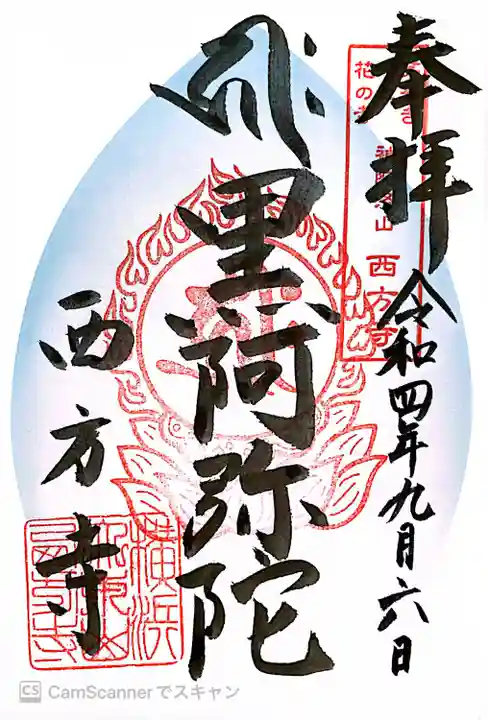 奉拝
令和四年九月六日
黒阿弥陀
西方寺
花の寺
西方寺
横浜
CS CamScannerでスキャン